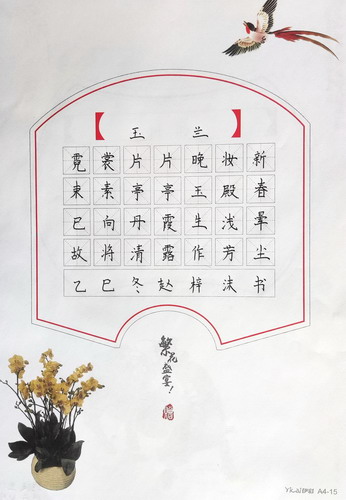 【 玉 兰 】
霓裳片片晚妆新
束素亭亭玉殿春
已向丹霞生浅晕
故将清露作芳尘
乙巳冬赵梓沫书
繁花盛宴!
A4-15